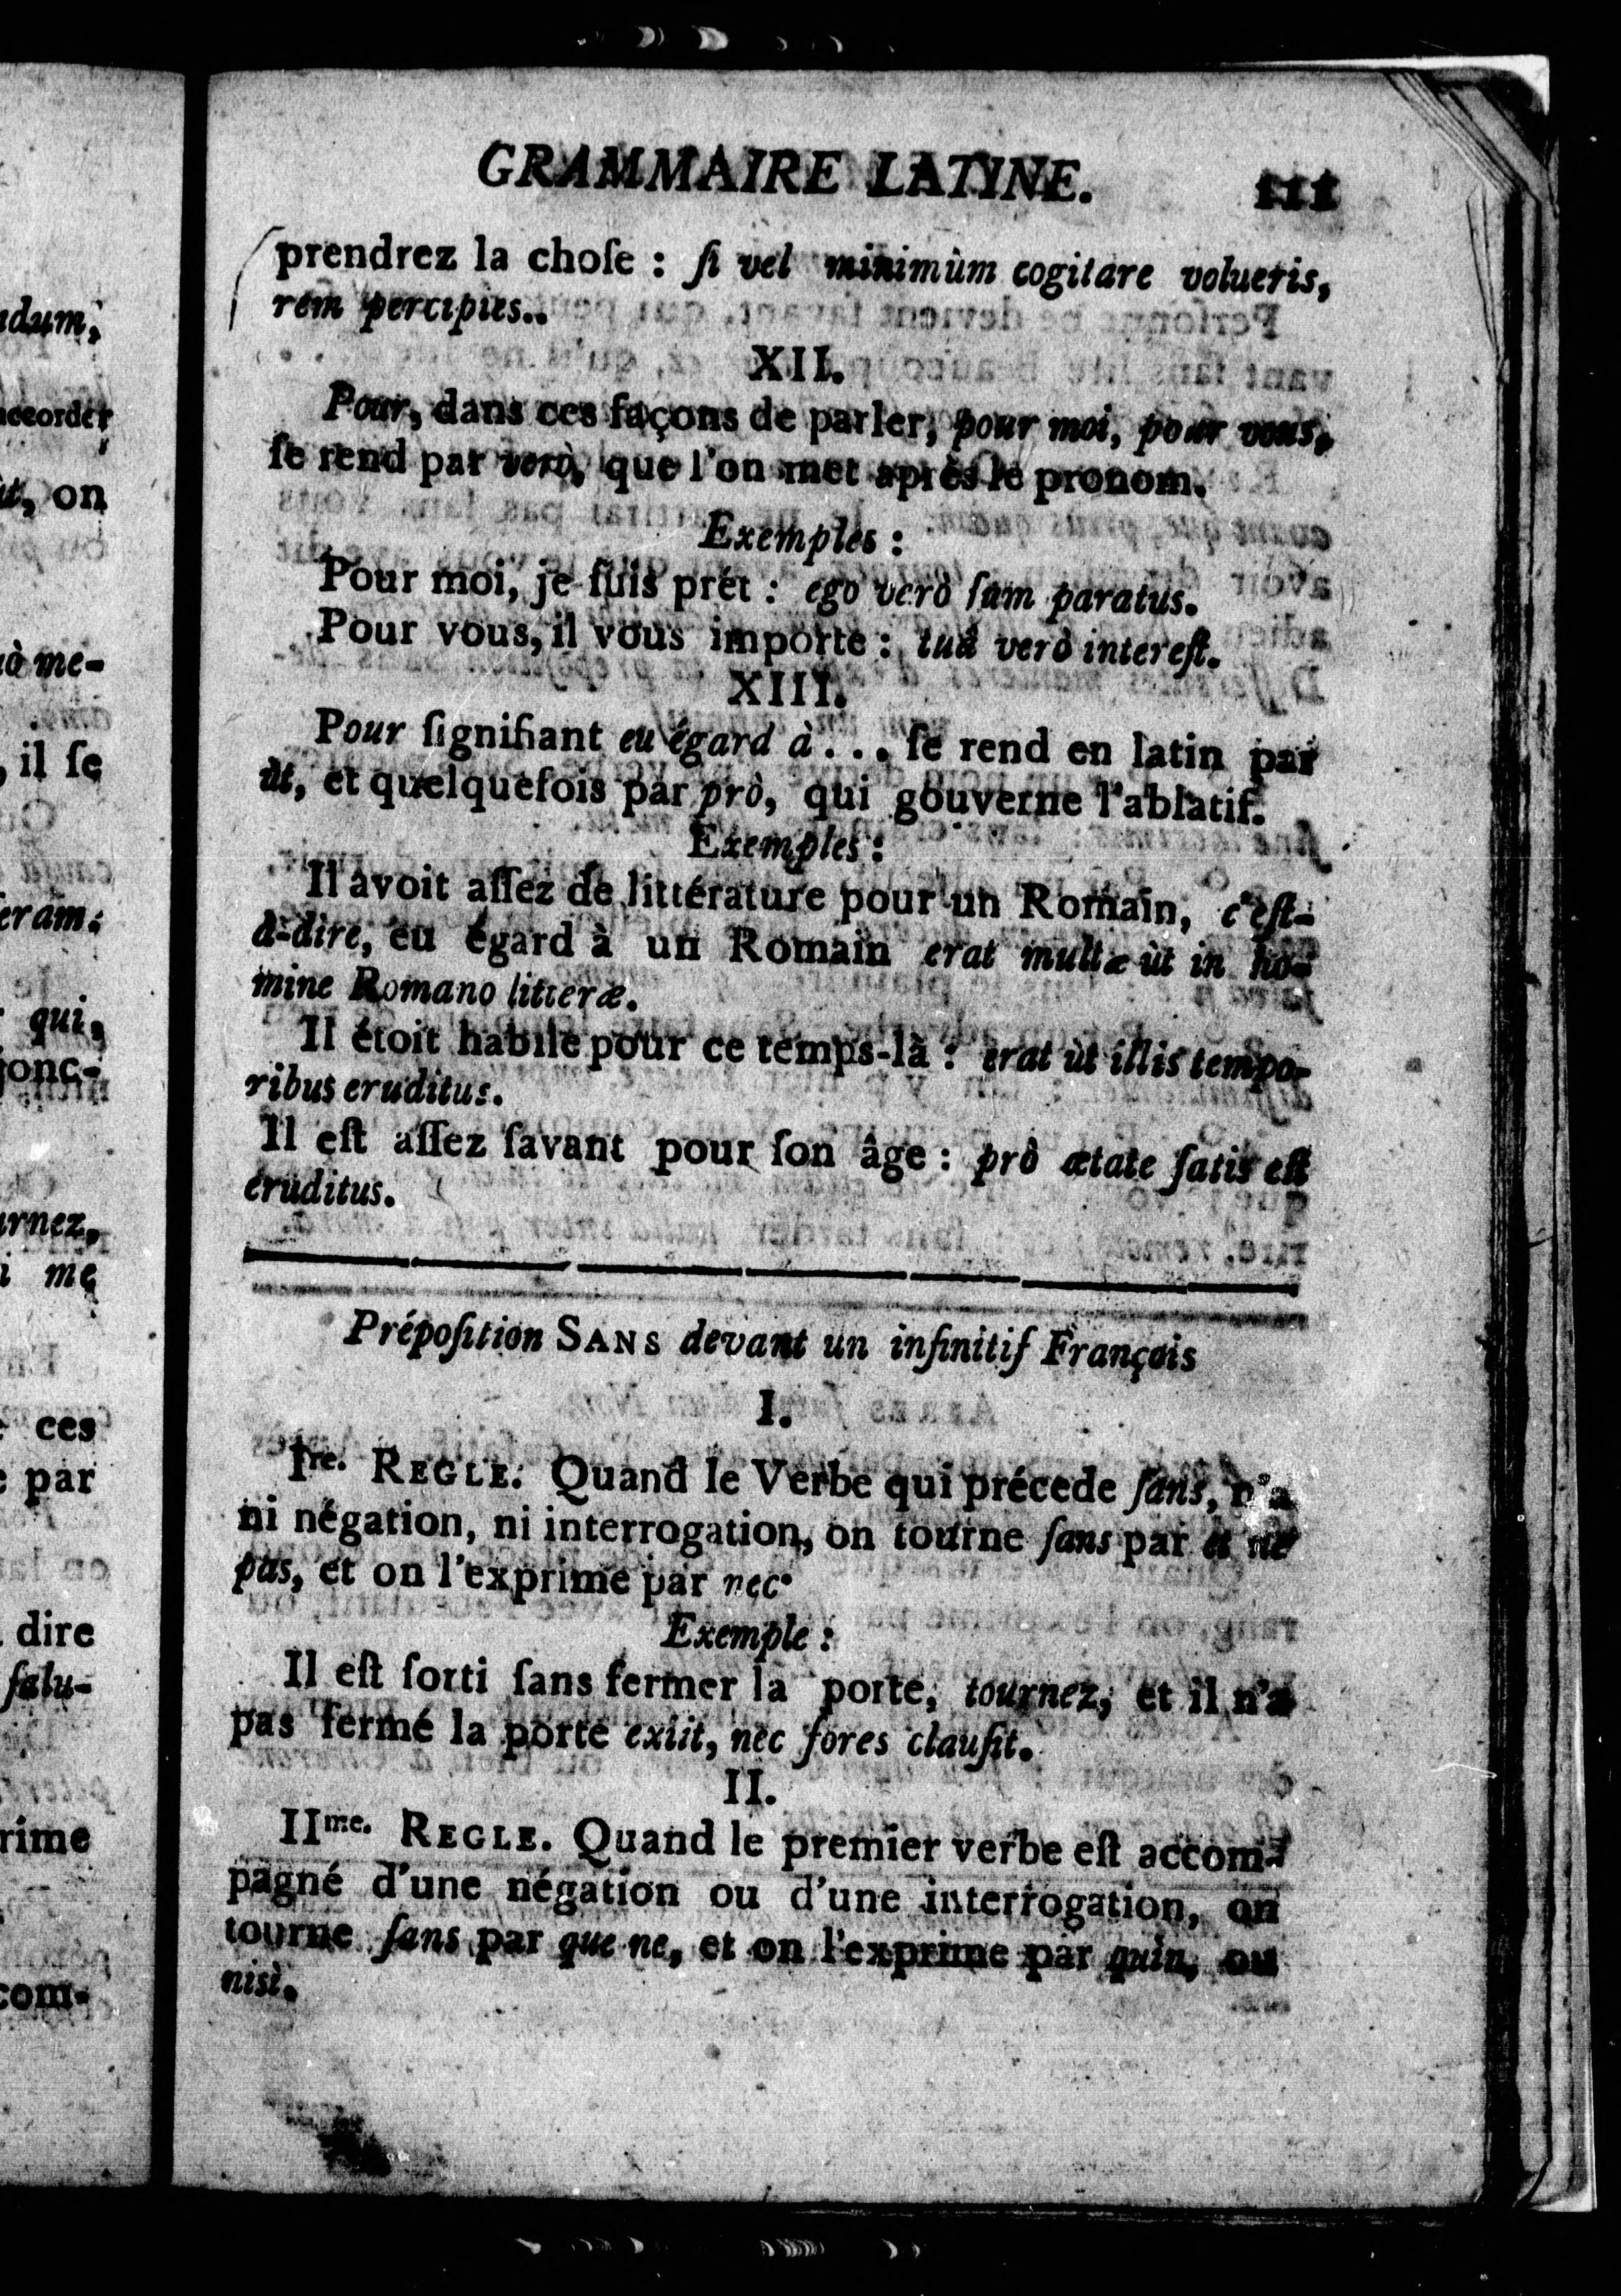 GRAMMAIRE LATINE. 111
prendrez la choſe : ſi vel minimùm cogitare volueris,
rem percipies..
XII.
Pour, dans ces façons de parler, pour moi, pour vous,
ſe rend par verò, que l'on met après le pronom.
Exemples :
Pour moi, je ſuis prêt : ego verò ſum paratus.
Pour vous, il vous importe : tuâ verò intereſt.
XIII.
Pour ſignifiant eu égard à . . . ſe rend en latin par
ùt, et quelquefois par prò, qui gouverne l'ablatif.
Exemples :
Il avoit aſſez de littérature pour un Romain, c'eſt-
à-dire, eu égard à un Romain erat multæ ùt in ho-
mine Romano litteræ.
Il étoit habile pour ce temps-là : erat ùt illis tempo-
ribus eruditus.
Il eſt aſſez ſavant pour ſon âge : prò ætate ſatis eſt
eruditus.
Prépoſition SANS devant un infinitif François
I.
Ire. REGLE. Quand le Verbe qui précede ſans, n'a
ni négation, ni interrogation, on tourne ſans par et ne
pas, et on l'exprime par nec.
Exemple :
Il eſt ſorti ſans fermer la porte, tournez, et il n'a
pas fermé la porte exiit, nec fores clauſit.
II.
IIme. REGLE. Quand le premier verbe eſt accom-
pagné d'une négation ou d'une interrogation, on
tourne ſans par que ne, et on l'exprime par quin, ou
nisì.
idum,
accorder
ut, on
uò me-
, il ſe
eram.
qui,
jonc-
urnez,
i me
ces
par
dire
ſalu-
rime
com-